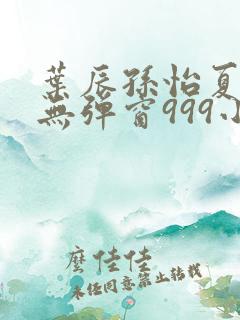 葉辰孫怡夏
無彈窗999小
麽佳佳
未經同意禁止轉載